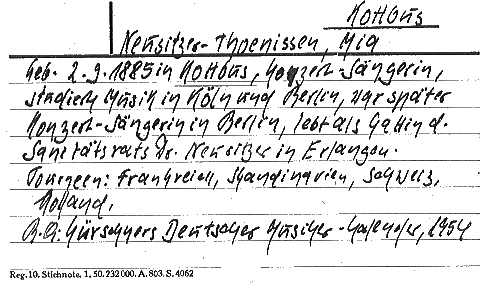 Kottbus
Neusitzer-Thoenissen, Mia
Geb. 2.9.1885 in Kottbus, Konzert-Sängerin,
studierte Musik in Köln und Berlin, war später
Konzert-Sängerin in Berlin, lebt als Gattin d.
Sanitätsrats Dr. Neusitzer in Erlangen.
Tourneen: Frankreich, Skandinavien, Schweiz,
Holland.
Kürschners Deutscher Musiker-Kalender, 1954
Reg. 10. Stichnote. 1, 50. 232 000. A. 803. S. 4062